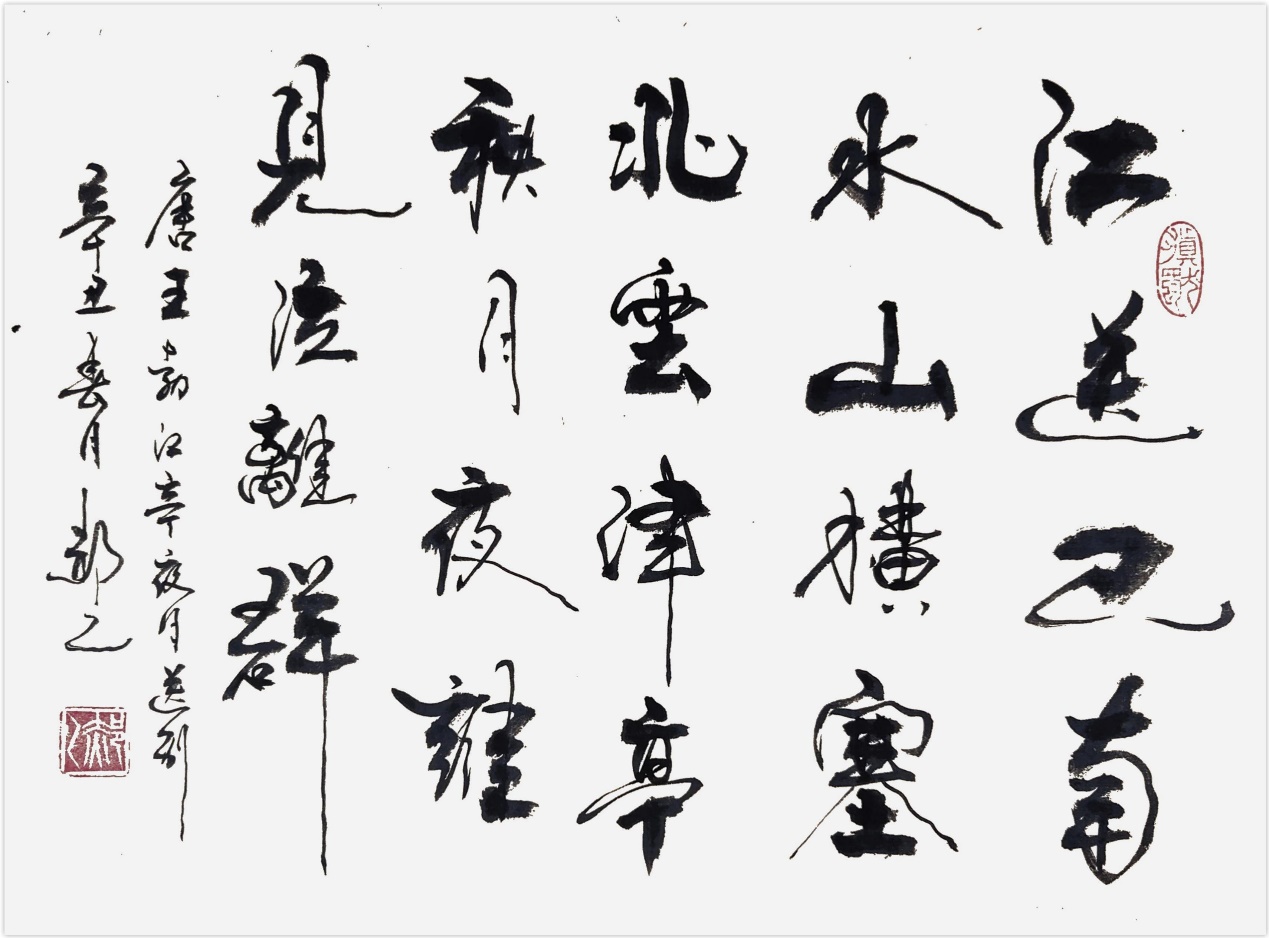 江送巴南
水山橫塞
北雲津亭
秋月夜誰
見泣離群
唐王勃江亭夜月送别
辛丑春月郝